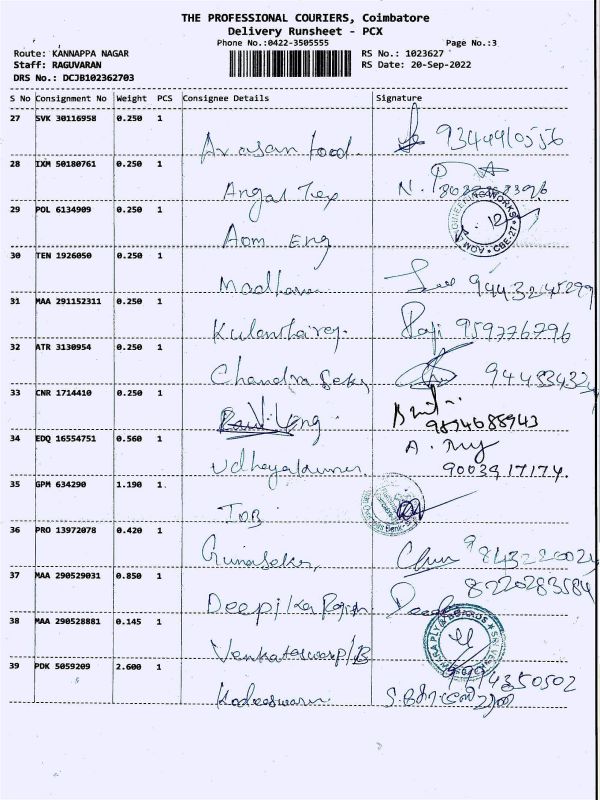 THE PROFESSIONAL COURIERS, Coimbatore
Delivery Runsheet - PCX
Phone No.:0422-3505555 Page No.:3
Route: KANNAPPA NAGAR RS No.: 1023627
Staff: RAGUVARAN RS Date: 20-Sep-2022
DRS No.: DCJB102362703
S No Consignment No Weight PCS Consignee Details Signature
27 SVK 30116958 0.250 1
Arasan food. 9344910556
28 IXM 50180761 0.250 1
Angal Tex N.
29 POL 6134909 0.250 1
Aom Eng ENGINEERING WORKS * CBE-27 * AOM
30 TEN 1926050 0.250 1
Madhavan
31 MAA 291152311 0.250 1
Raji 959776796
32 ATR 3130954 0.250 1
Chandra Seker
33 CNR 1714410 0.250 1
9894688943
34 EDQ 16554751 0.560 1
Udhayakumar. 9003917174.
35 GPM 634290 1.190 1
IOB
36 PRO 13972078 0.420 1
Gunaseker,
37 MAA 290529031 0.850 1
8220283584
Deepika Rajan
38 MAA 290528881 0.145 1
39 PDK 5059209 2.600 1